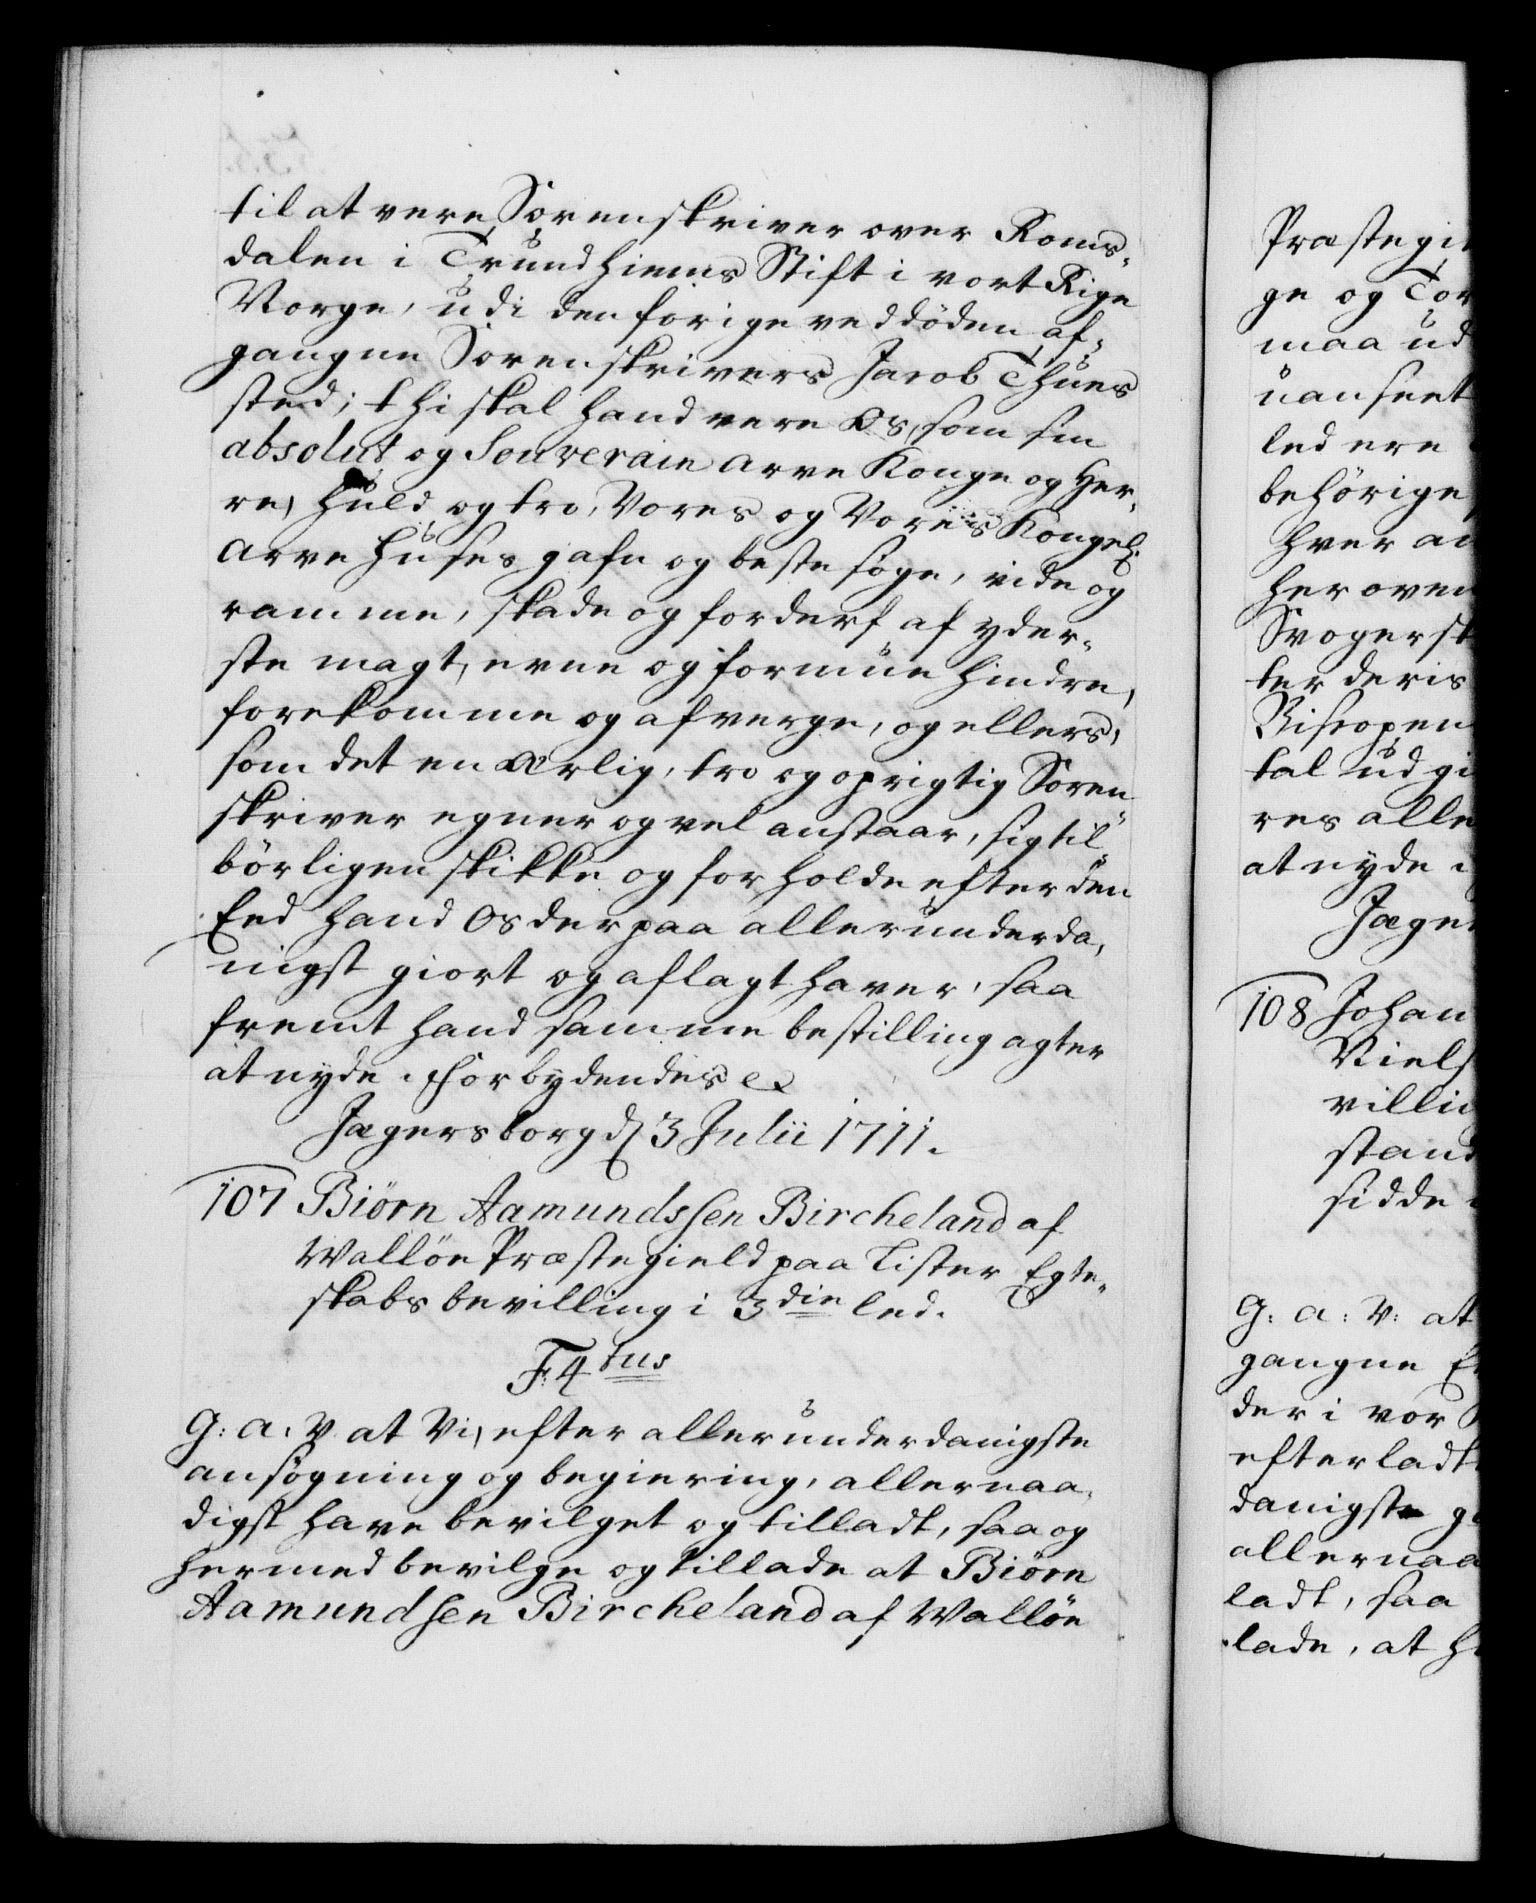 til at vere Sorenskriver over Roms-
dalen i Trundhiems Stift i vort Rige
Norge, udi den forige ved döden af-
gangne Sorenskrivers Jacob Thues
sted; thi skal hand vere Os, som sin
absolut og Souverain arve Konge og Her-
re, huld og tro, Vores og Voris Kongel:
arve Huses gafn og beste söge, vide og
ramme, skade og forderf af yder-
ste magt, evne og formue hindre,
forekomme og afverge, og ellers,
som det en ærlig, tro og oprigtig Soren-
skriver egner og vel anstaar, sig til-
börligen skikke og forholde efter den
Eed hand Os derpaa allerunderda-
nigst giort og aflagt haver, saa
fremt hand samme bestilling agter
at nyde. Forbydendes &
Jægersborg d 3 Julii 1711.
107 Biörn Aamundssen Bircheland af
Wallöe Præstegield paa Lister Egte-
skabs bevilling i 3die led.
F: 4tus
G: a: V. at Vi, efter allerunderdanigste
ansögning og begiering, allernaa-
digst have bevilget og tilladt, saa og
hermed bevilge og tillade at Biörn
Aamundsen Bircheland af Wallöe
Præstegi
ge og Tor
maa ud
uanseet
led ere
behörige
hver an
her oven
Svogersk
ter deris
Bispen
tal udgi
res alle
at nyde
Jæger
108 Johan
Niels
villi
stand
sidde
G: a: V: at
gangne E
der i vor
efterladt
danigste
allernaa
ladt, saa
lade, at h